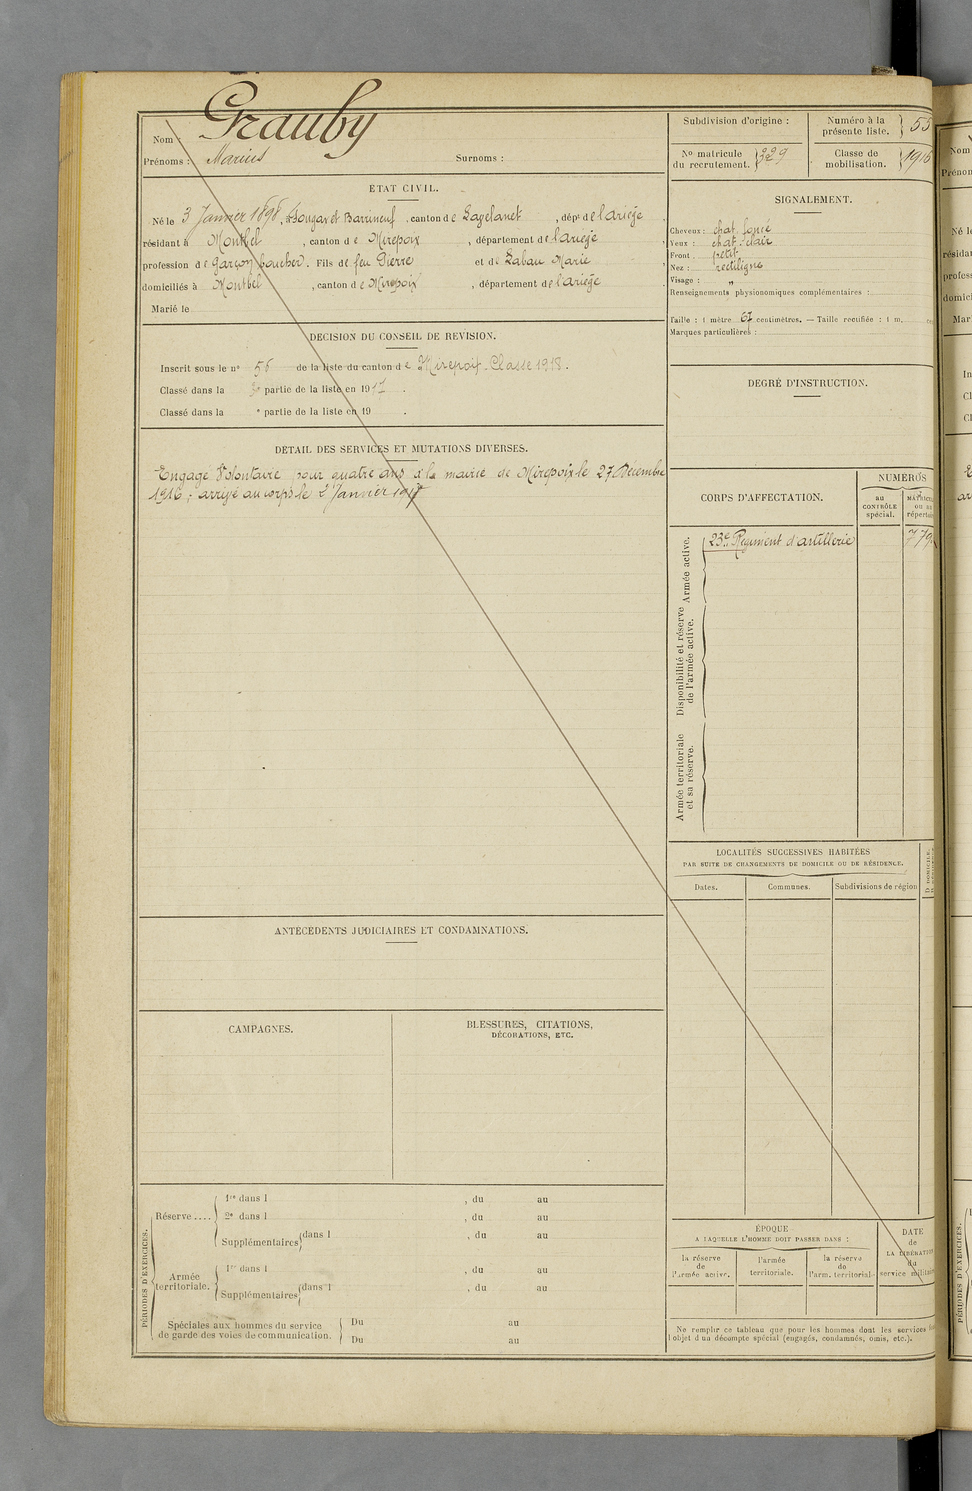 Nom : Grauby
Prénoms : Marius Surnoms :
ETAT CIVIL.
Né le 3 Janvier 1898, à , canton de Lavelanet , dépt de l'ariège
résidant à Montbel , canton de Mirepoix , département de l'ariège
profession de garçon boucher. Fils de feu Pierre et de Laban Marie
domiciliés à Montbel , canton de Mirepoix , département de l'ariège
Marié le
DECISION DU CONSEIL DE REVISION.
Inscrit sous le no 56 de la liste du canton de Mirepoix. Classe 1918.
Classé dans la partie de la liste en 1917 .
Classé dans la e partie de la liste en 19 .
DÉTAIL DES SERVICES ET MUTATIONS DIVERSES.
Engagé Volontaire pour quatre ans à la mairie de Mirepoix le 27 Décembre
1916 ; arrivé au corps le 2 Janvier 1917
ANTÉCÉDENTS JUDICIAIRES ET CONDAMNATIONS.
CAMPAGNES.
BLESSURES, CITATIONS,
DÉCORATIONS, ETC.
PÉRIODES D'EXERCICES.
Réserve ....
1re dans l , du au
2e dans l , du au
Supplémentaires dans l , du au
Armée
territoriale.
1re dans l , du au
Supplémentaires dans l , du au
Spéciales aux hommes du service
de garde des voies de communication.
Du au
Du au
Subdivision d'origine :
Numéro à la
présente liste. 55
No matricule
du recrutement. 329
Classe de
mobilisation. 1916
SIGNALEMENT.
Cheveux : chat. foncé
Yeux : chat. clair
Front : petit
Nez : rectiligne
Visage : "
Renseignements physionomiques complémentaires :
Taille : 1 mètre 67 centimètres. — Taille rectifiée : 1 m.
Marques particulières :
DEGRÉ D'INSTRUCTION.
CORPS D'AFFECTATION.
NUMÉROS
au
CONTRÔLE
spécial.
MATRICULE
ou au
répertoire
Armée active.
23e Régiment d'artillerie 779
Disponibilité et réserve
de l'armée active.
Armée territoriale
et sa réserve.
LOCALITÉS SUCCESSIVES HABITÉES
PAR SUITE DE CHANGEMENTS DE DOMICILE OU DE RÉSIDENCE.
Dates. Communes. Subdivisions de région
ÉPOQUE
A LAQUELLE L'HOMME DOIT PASSER DANS :
la réserve
de
l'armée active.
l'armée
territoriale.
la réserve
de
l'arm. territorial.
DATE
de
LA LIBÉRATION
du
service militaire
Ne remplir ce tableau que pour les hommes dont les services
l'objet d'un décompte spécial (engagés, condamnés, omis, etc.).